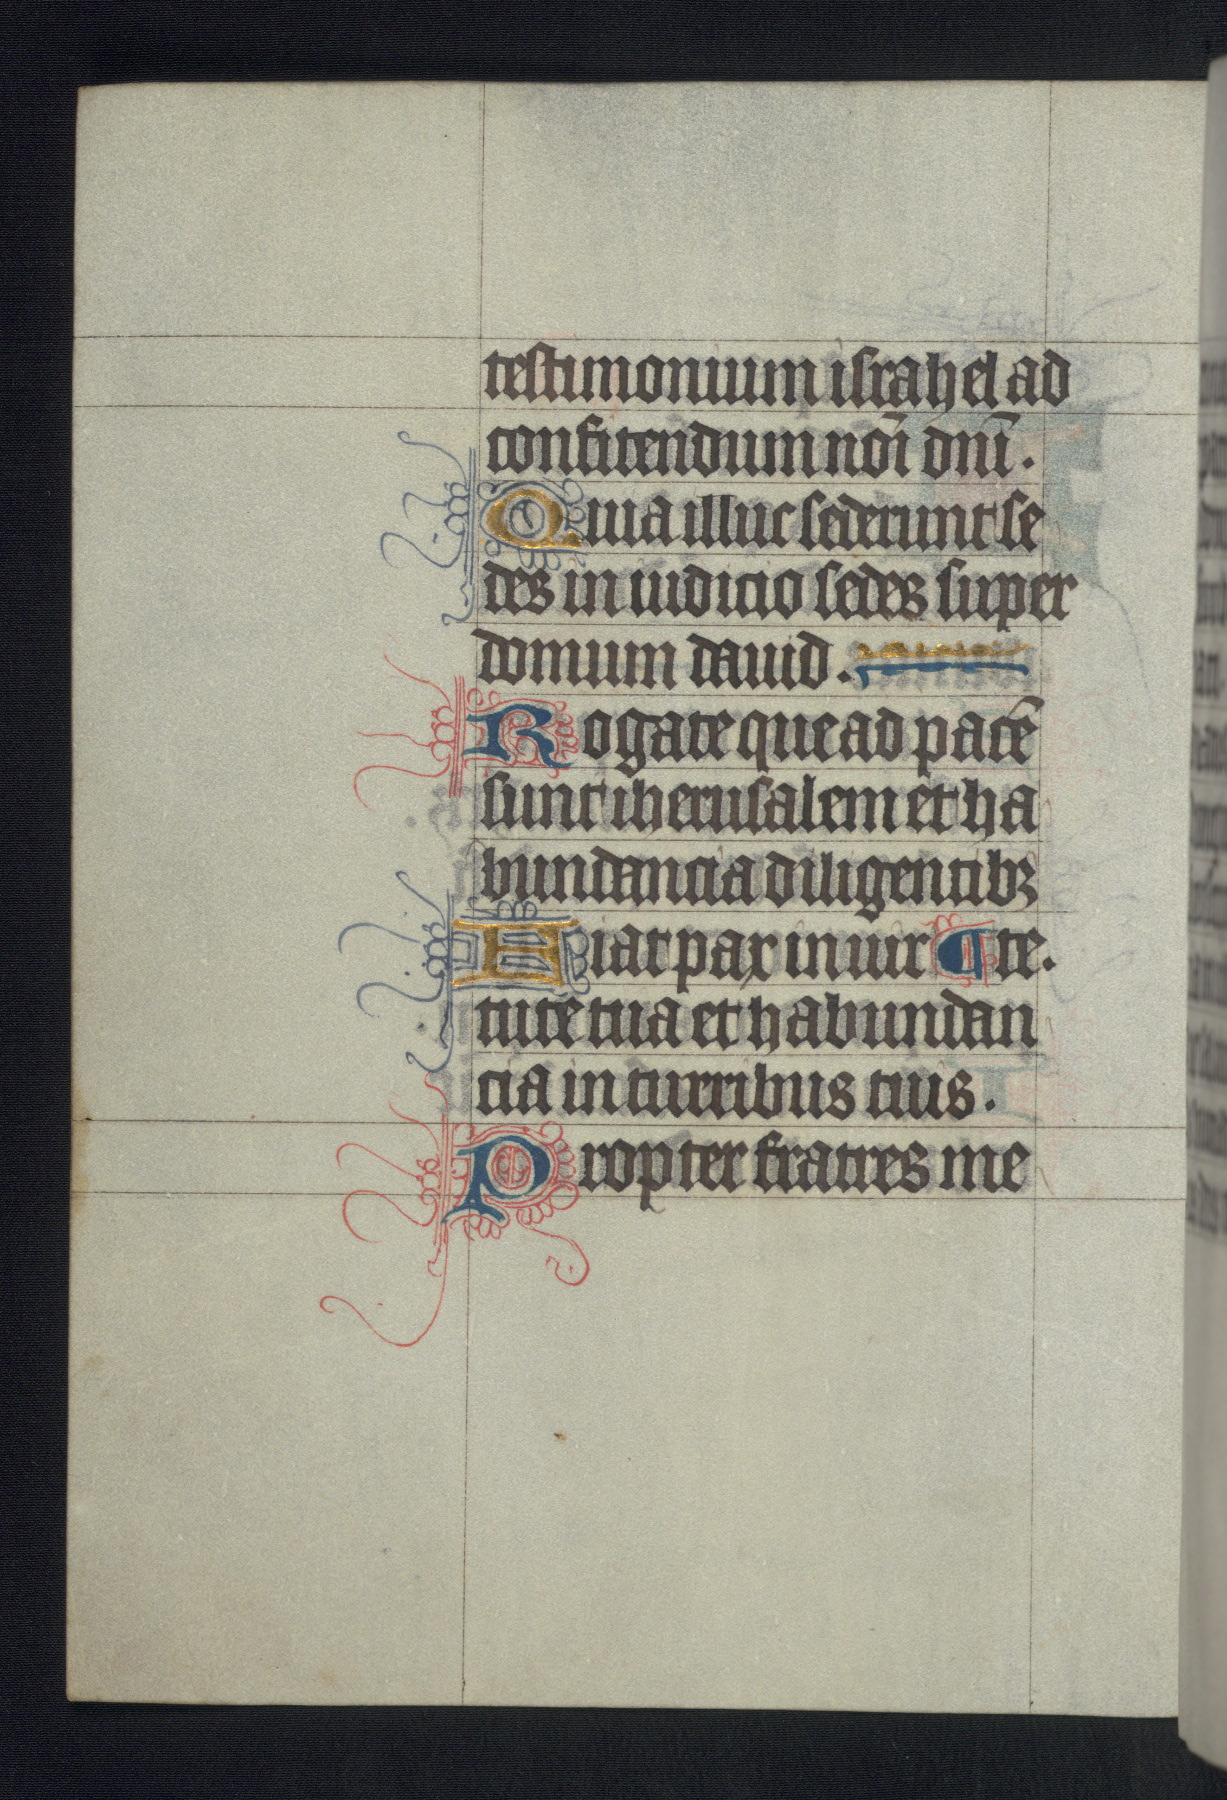 testimonium israhel ad
confitendum noī dnī.
Quia illuc sederunt se
des in iudicio sedes super
domum dauid.
Rogate que ad pacē
sunt iherusalem et ha
bundancia diligentibꝫ
Fiat pax in uir ¶ te.
tute tua et habundan
cia in turribus tuis.
Propter fratres me